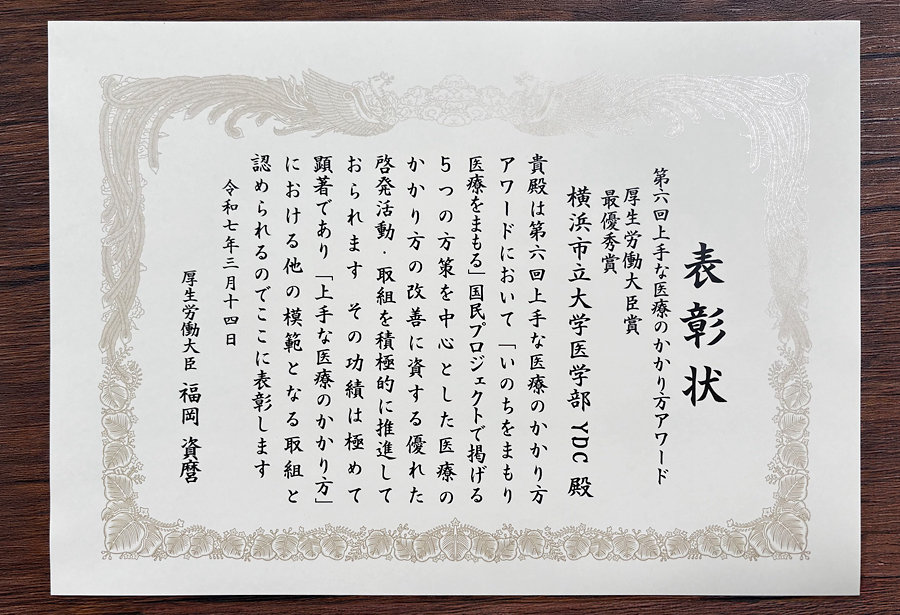 表彰状
第六回上手な医療のかかり方アワード
厚生労働大臣賞
最優秀賞
横浜市立大学医学部 YDC 殿
貴殿は第六回上手な医療のかかり方
アワードにおいて「いのちをまもり
医療をまもる」国民プロジェクトで掲げる
5つの方策を中心とした医療の
かかり方の改善に資する優れた
啓発活動・取組を積極的に推進して
おられます その功績は極めて
顕著であり「上手な医療のかかり方」
における他の模範となる取組と
認められるのでここに表彰します
令和七年三月十四日
厚生労働大臣 福岡 資麿